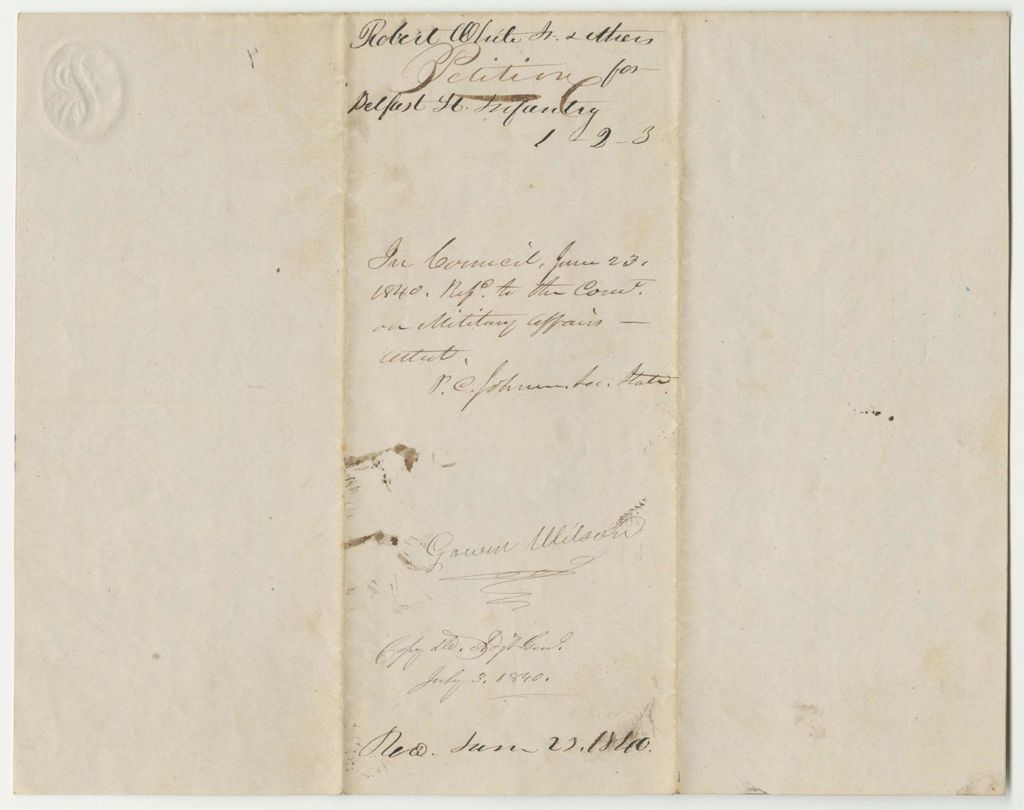 Robert White Jr. & others
Petition for
Belfast Lt. Infantry
1 - 2 - 3
In Council, June 23,
1840. Refd. to the Comt.
on Military Affairs —
Attest.
P. C. Johnson. Sec. State.
Gowen Wilson
Copy dd. Adjt Genl.
July 3. 1840.
Recd. June 23. 1840.